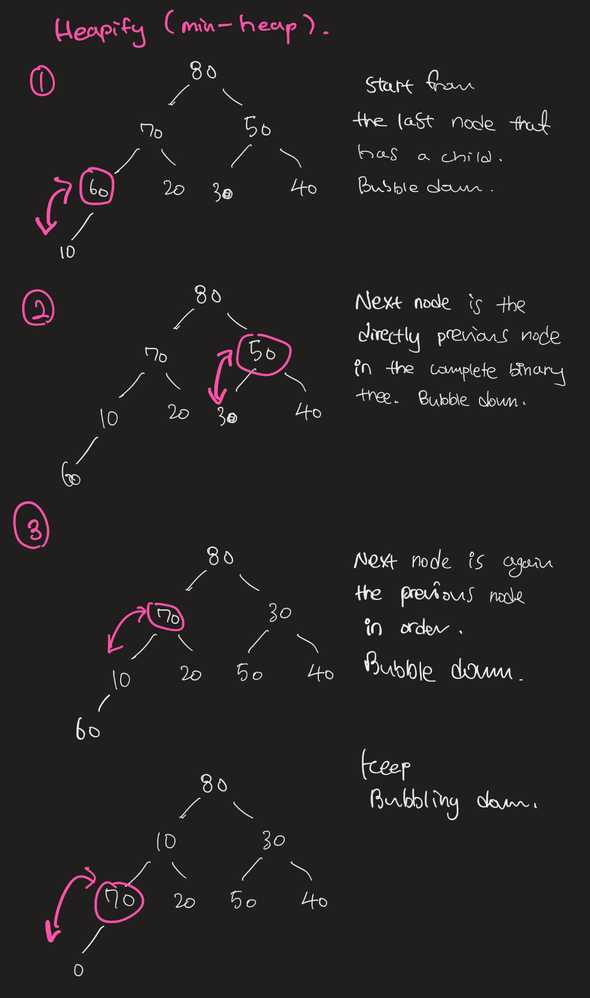 Heapify (min-heap).
①
80
70 50
60 20 30 40
10
start from
the last node that
has a child.
Bubble down.
②
80
70 50
10 20 30 40
60
Next node is the
directly previous node
in the complete binary
tree. Bubble down.
③
80
70 30
10 20 50 40
60
Next node is again
the previous node
in order.
Bubble down.
80
10 30
70 20 50 40
0
keep
Bubbling down.